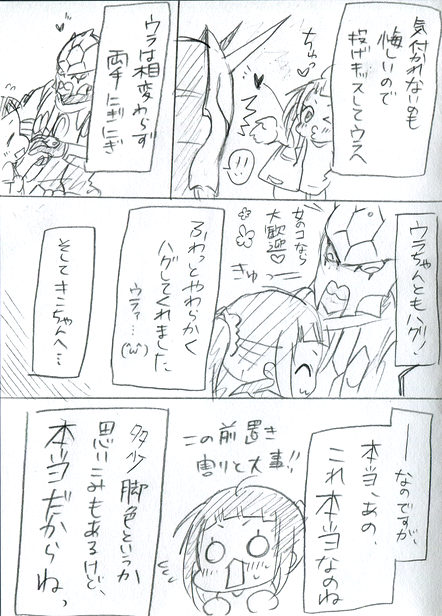 気付かれないのも
悔しいので
投げキッスしてウラへ
ちゅっ
ウラは相変わらず
両手にぎにぎ
ウラちゃんともハグ!
女のコなら
大歓迎♡
きゅっ
ふわっとやわらかく
ハグしてくれました
ウラァ…(^ω^)
そしてキンちゃんへ…
ーなのですが、
本当、あの、
これ本当なのね
この前置き
割りと大事!!
多少脚色というか
思いこみもあるけど、
本当だからねっ